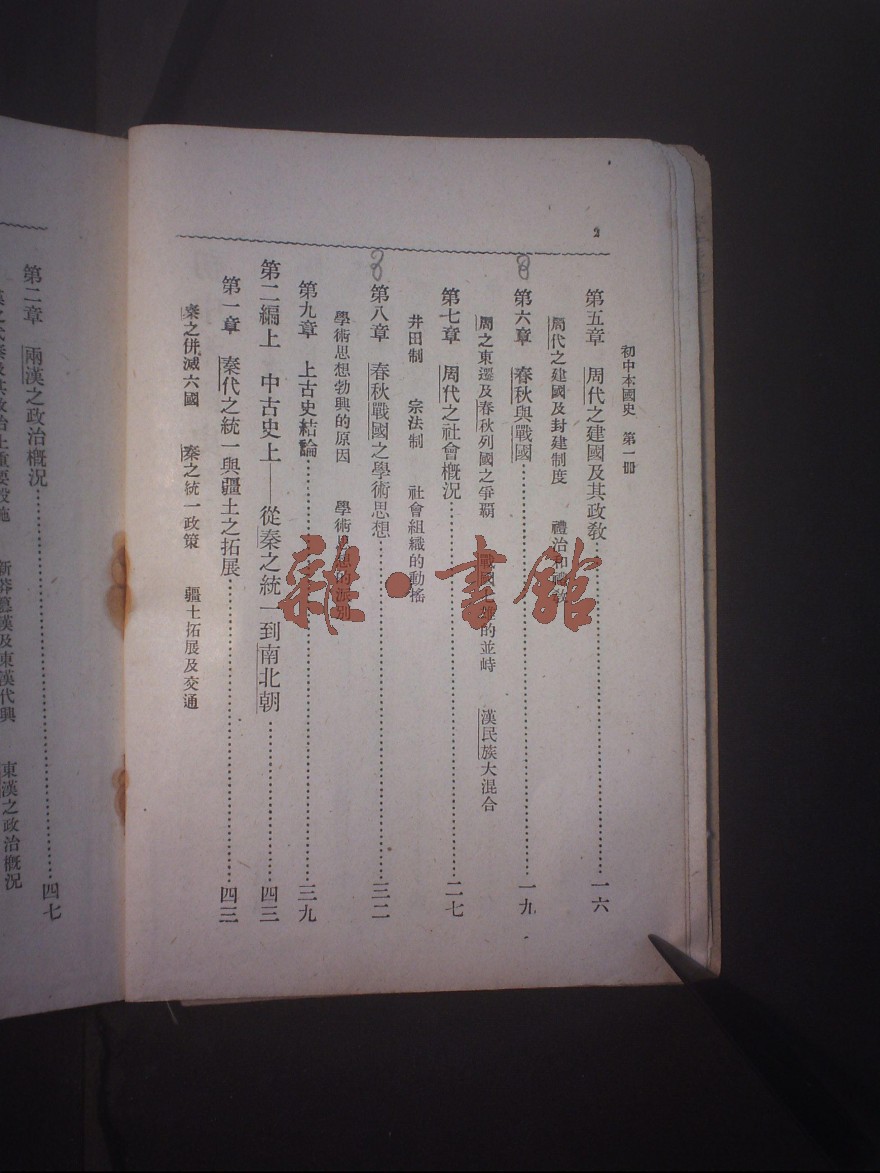 2
初中本國史 第一冊
第五章 周代之建國及其政教……一六
周代之建國及封建制度 禮治和禮教
第六章 春秋與戰國……一九
周之東遷及春秋列國之爭霸 戰國七雄的並峙 漢民族大混合
第七章 周代之社會概況……二七
井田制 宗法制 社會組織的動搖
第八章 春秋戰國之學術思想……三二
學術思想勃興的原因 學術思想的派別
第九章 上古史結論……三九
第二編上 中古史上——從秦之統一到南北朝……四三
第一章 秦代之統一與疆土之拓展……四三
秦之併滅六國 秦之統一政策 疆土拓展及交通
第二章 兩漢之政治概況……四七
新莽篡漢及東漢代興 東漢之政治概況
雜·書館